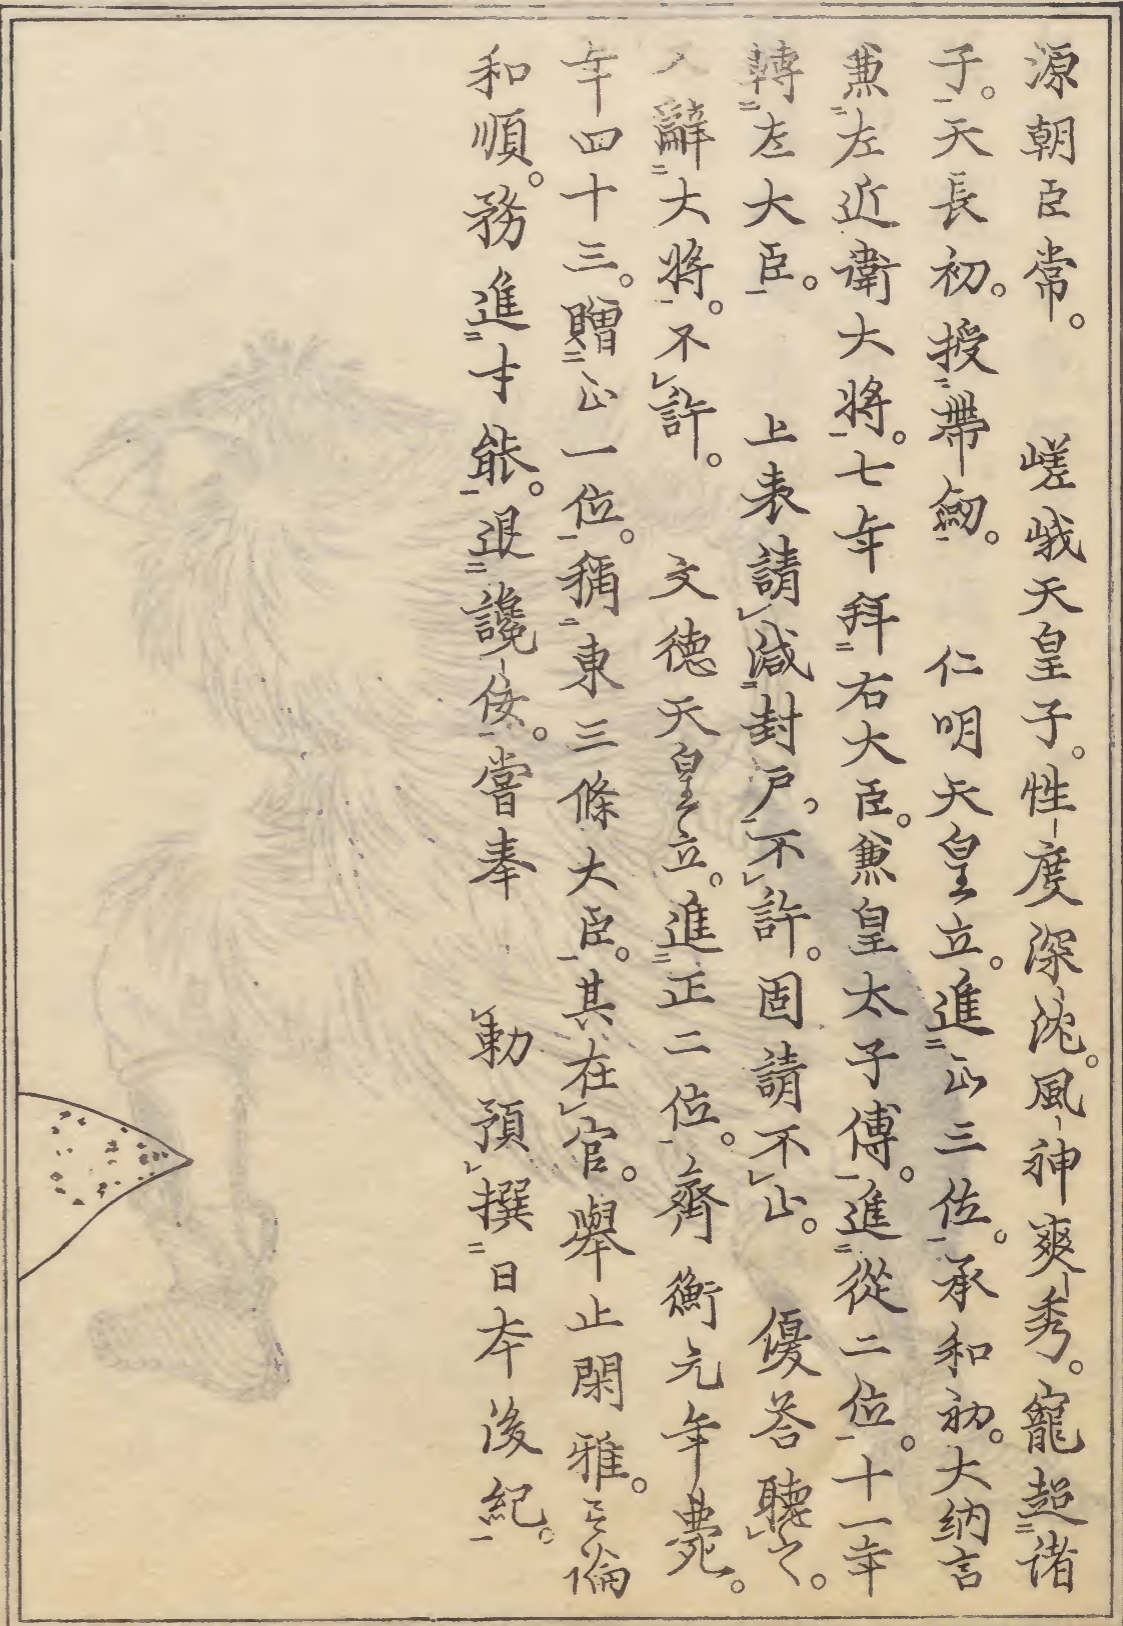 源朝臣常。　嵯峨天皇子。性度深沈。風神爽秀。寵超諸
子。天長初。授帶劔。　仁明天皇立。進正三位。承和初。大納言
兼左近衛大將。七年拜右大臣。兼皇太子傅。進從二位。十一年
轉左大臣。　上表請減封戸。不許。固請不止。　優荅聽之。
又辭大將。不許。　文德天皇立。進正二位。齊衡元年薨。
年四十三。贈正一位。稱東三條大臣。其在官。擧止閑雅。言論
和順。務進才能。退讒佞。嘗奉　勅預撰日本後紀。